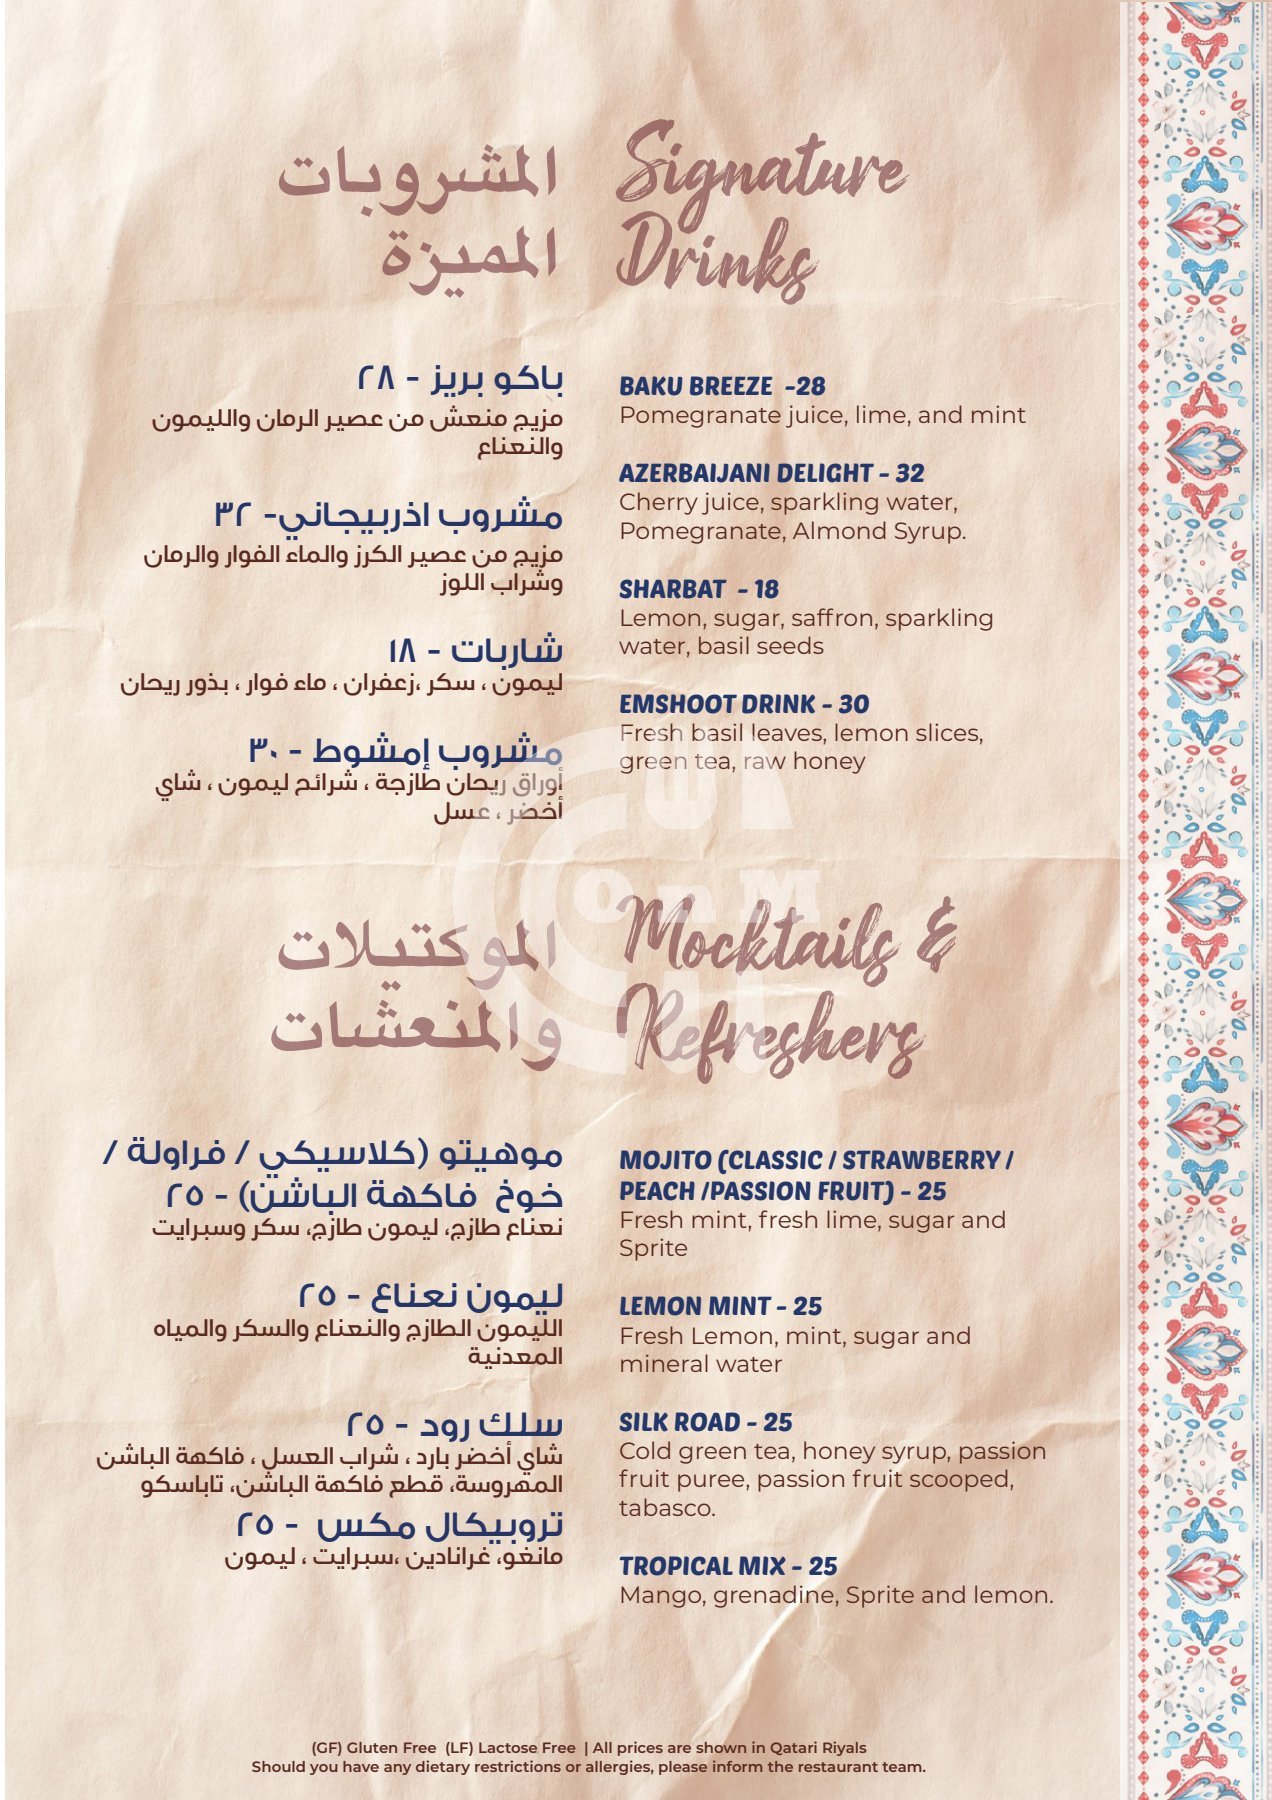 المشروبات
المميزة
Signature
Drinks
باكو بريز - ٢٨
مزيج منعش من عصير الرمان والليمون
والنعناع
مشروب اذربيجاني- ٣٢
مزيج من عصير الكرز والماء الفوار والرمان
وشراب اللوز
شاربات - ١٨
ليمون ، سكر ،زعفران ، ماء فوار ، بذور ريحان
مشروب إمشوط - ٣٠
أوراق ريحان طازجة ، شرائح ليمون ، شاي
أخضر ، عسل
BAKU BREEZE -28
Pomegranate juice, lime, and mint
AZERBAIJANI DELIGHT - 32
Cherry juice, sparkling water,
Pomegranate, Almond Syrup.
SHARBAT - 18
Lemon, sugar, saffron, sparkling
water, basil seeds
EMSHOOT DRINK - 30
Fresh basil leaves, lemon slices,
green tea, raw honey
الموكتيلات
والمنعشات
Mocktails &
Refreshers
موهيتو (كلاسيكي / فراولة /
خوخ فاكهة الباشن) - ٢٥
نعناع طازج، ليمون طازج، سكر وسبرايت
ليمون نعناع - ٢٥
الليمون الطازج والنعناع والسكر والمياه
المعدنية
سلك رود - ٢٥
شاي أخضر بارد ، شراب العسل ، فاكهة الباشن
المهروسة، قطع فاكهة الباشن، تاباسكو
تروبيكال مكس - ٢٥
مانغو، غرانادين ،سبرايت ، ليمون
MOJITO (CLASSIC / STRAWBERRY /
PEACH /PASSION FRUIT) - 25
Fresh mint, fresh lime, sugar and
Sprite
LEMON MINT - 25
Fresh Lemon, mint, sugar and
mineral water
SILK ROAD - 25
Cold green tea, honey syrup, passion
fruit puree, passion fruit scooped,
tabasco.
TROPICAL MIX - 25
Mango, grenadine, Sprite and lemon.
(GF) Gluten Free (LF) Lactose Free | All prices are shown in Qatari Riyals
Should you have any dietary restrictions or allergies, please inform the restaurant team.